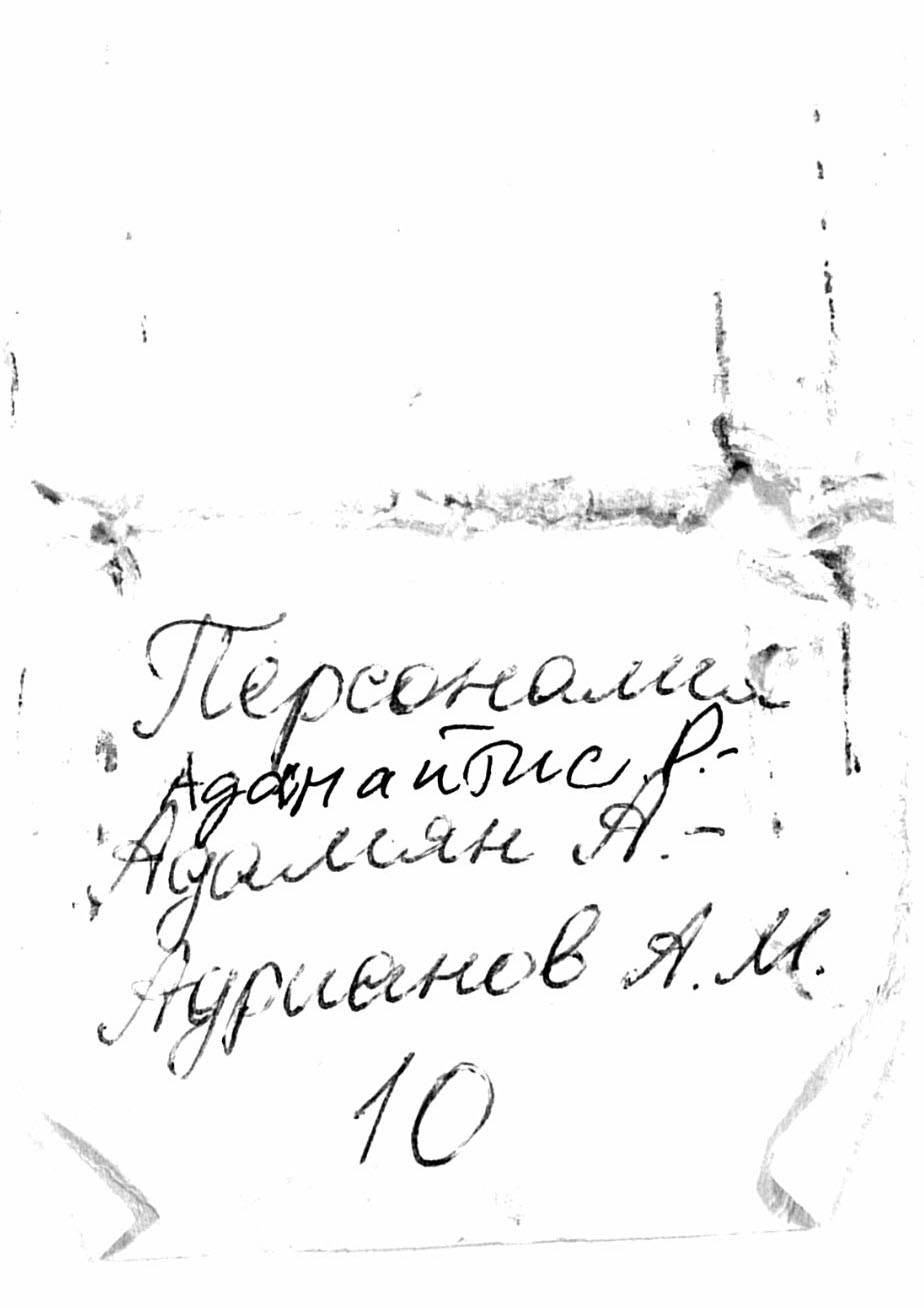 Персоналия
Адонайтис Р.-
Адамян А.-
Адрианов А.М.
10